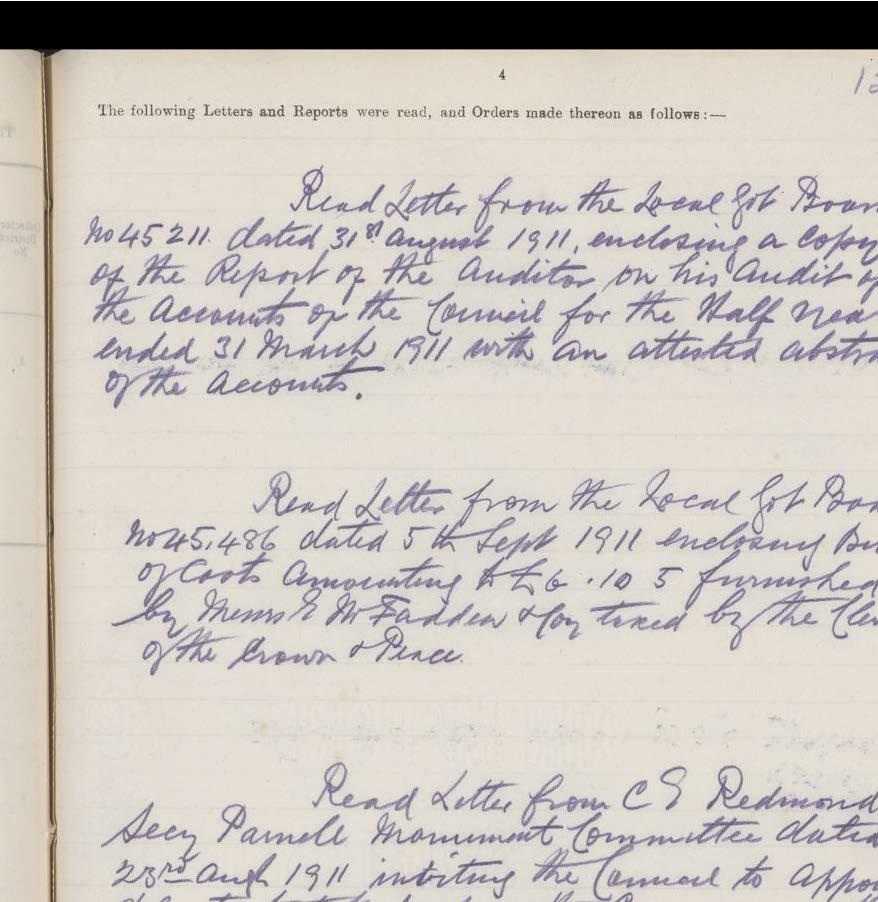 4
12
The following Letters and Reports were read, and Orders made thereon as follows:—
Read Letter from the Local Got Boar
No 45211. dated 31st august 1911, enclosing a copy
of the Report of the Auditor on his Audit of
the Accounts of the Council for the Half Yea
ended 31 March 1911 with an attested abstra
of the Accounts.
Read Letter from the Local Got Boa
No 45,486 dated 5th Sept 1911 enclosing Bi
of Costs amounting to £6.10 5 furnished
by Messrs E McFadden & Coy taxed by the Cler
of the Crown & Peace.
Read Letter from C E Redmond
Secy Parnell Monument Committee dated
23rd Augt 1911 inviting the Council to appoi